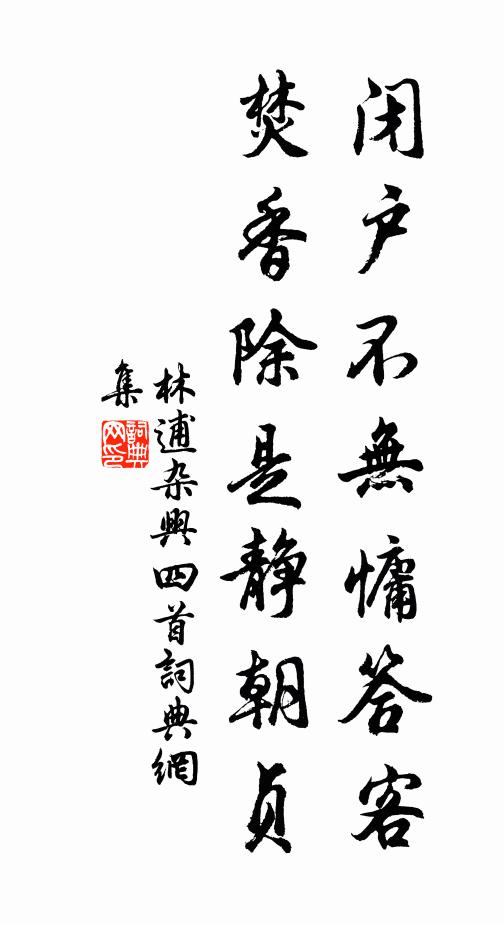 闭户不無慵答客
焚香除是静朝贞
林逋杂興四首詞典網
集
詞典网印